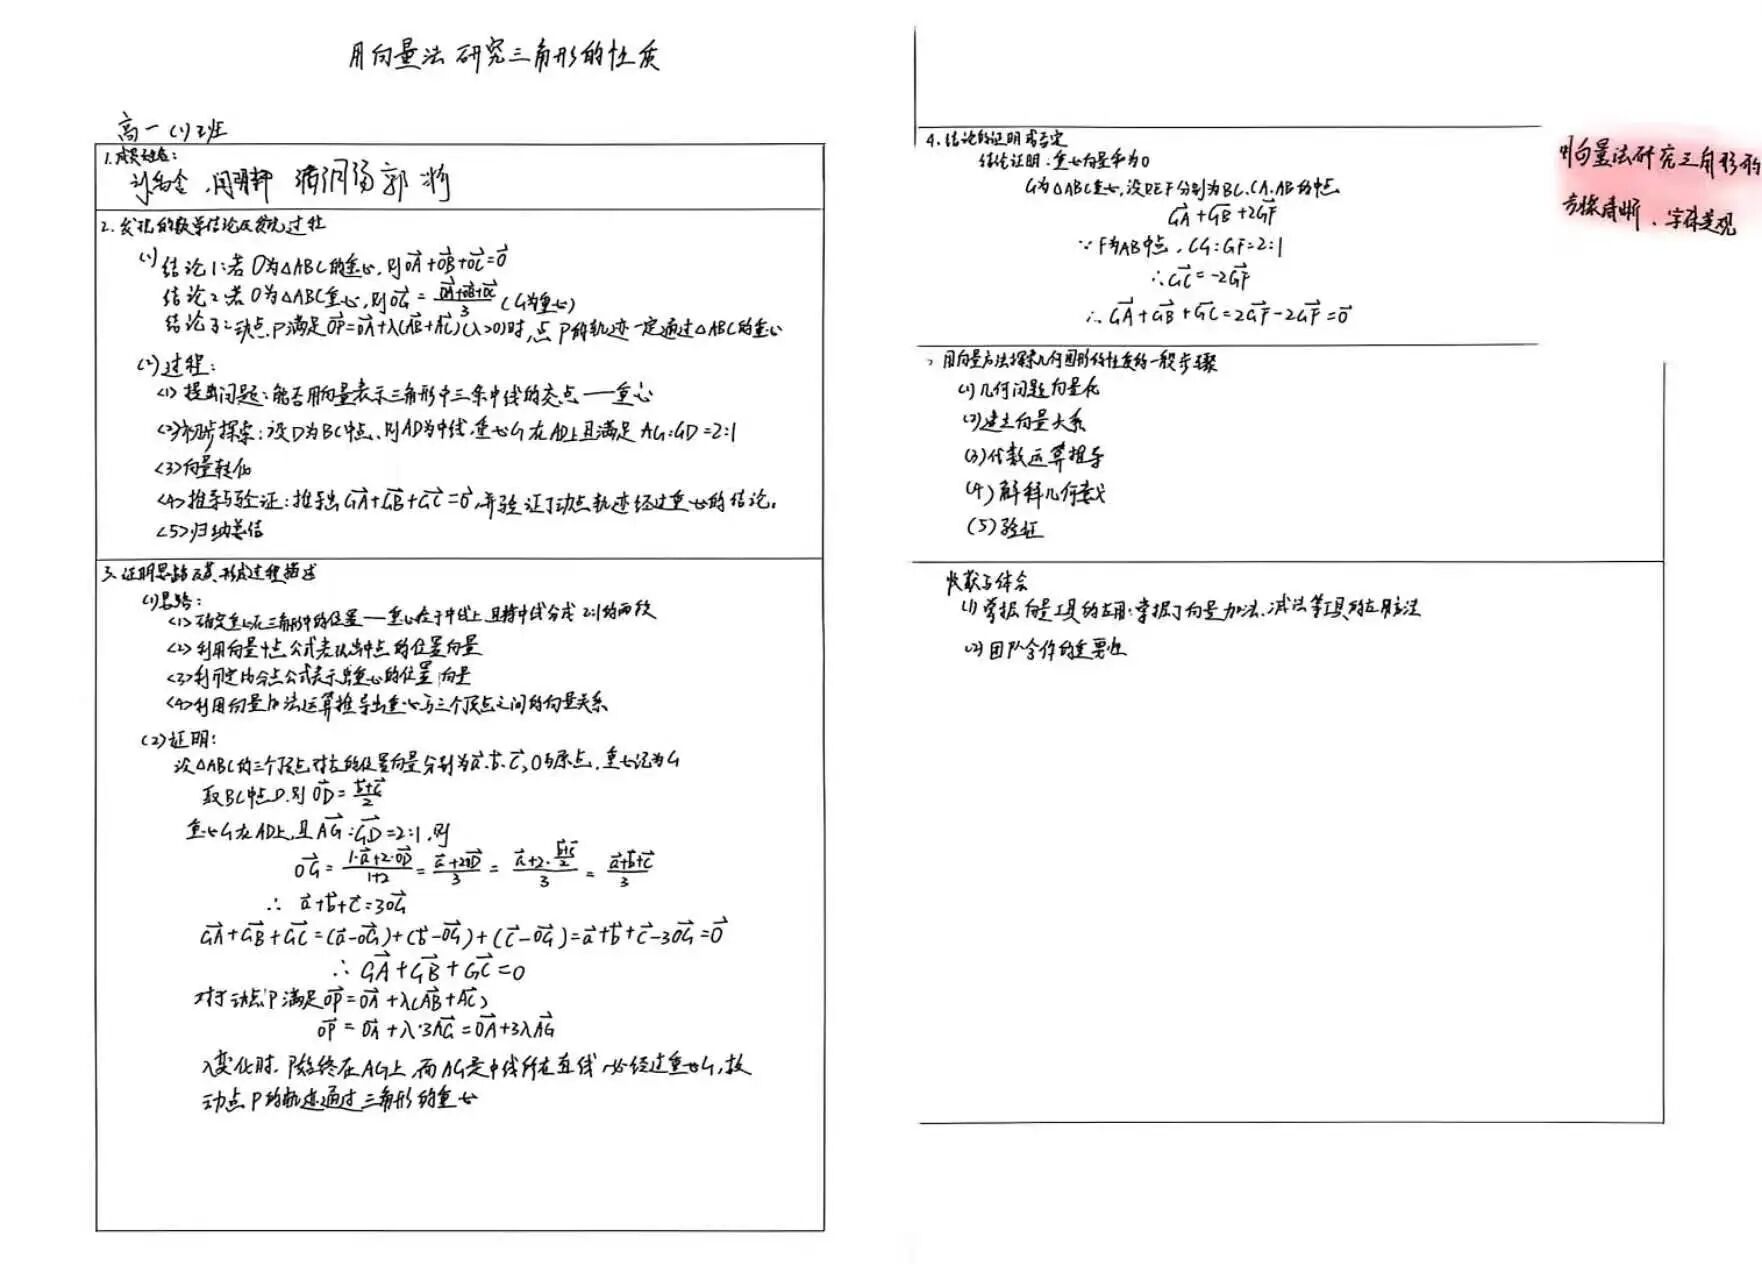 用向量法研究三角形的性质
高一(1)2班
1.成员姓名:
2.发现的数学结论及发现过程
(1)结论1:若O为△ABC的重心,则OA+OB+OC=0
结论2:若O为△ABC重心,则OG=(OA+OB+OC)/3(G为重心)
结论3:动点P满足OP=OA+λ(AB+AC)(λ>0)时,点P的轨迹一定通过△ABC的重心
(2)过程:
<1>提出问题:能否用向量表示三角形中三条中线的交点——重心
<2>初步探索:设D为BC中点,则AD为中线,重心G在AD上且满足AG:GD=2:1
<3>向量转化
<4>推导与验证:推导出GA+GB+GC=0,并验证了动点轨迹经过重心的结论。
<5>归纳总结
3.证明思路及其形成过程描述
(1)思路:
<1>确定重心在三角形中的位置——重心在于中线上,且将中线分成2:1的两段
<2>利用向量中点公式表示出中点的位置向量
<3>利用定比分点公式表示出重心的位置向量
<4>利用向量加法运算推导出重心与三个顶点之间的向量关系
(2)证明:
设△ABC的三个顶点对应的位置向量分别为a.b.c,O为原点,重心记为G
取BC中点D,则OD=(b+c)/2
重心G在AD上,且AG:GD=2:1,则
OG=(1·a+2·OD)/(1+2)=(a+2OD)/3=(a+2·(b+c)/2)/3=(a+b+c)/3
∴ a+b+c=3OG
GA+GB+GC=(a-OG)+(b-OG)+(c-OG)=a+b+c-3OG=0
∴ GA+GB+GC=0
对于动点P满足OP=OA+λ(AB+AC)
OP=OA+λ·3AG=OA+3λAG
λ变化时,P始终在AG上,而AG是中线所在直线,必经过重心G,故
动点P的轨迹通过三角形的重心
4.结论的证明或否定
结论证明:重心向量和为0
G为△ABC重心,设DEF分别为BC.CA.AB的中点
GA+GB+2GF
∵F为AB中点,CG:GF=2:1
∴GC=-2GF
∴GA+GB+GC=2GF-2GF=0
用向量方法探索几何图形的性质的一般步骤
(1)几何问题向量化
(2)建立向量关系
(3)代数运算推导
(4)解释几何意义
(5)验证
收获与体会
(1)掌握向量工具的应用:掌握了向量加法、减法等工具的应用方法
(2)团队合作的重要性
用向量法研究三角形的
步骤清晰,字体美观